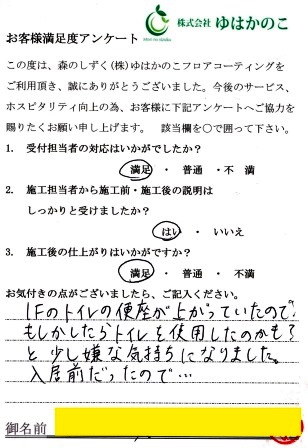 株式会社 ゆはかのこ
お客様満足度アンケート
この度は、森のしずく(株)ゆはかのこフロアコーティングを
ご利用頂き、誠にありがとうございました。今後のサービス、
ホスピタリティ向上の為、お客様に下記アンケートへご協力を
賜りたくお願い申し上げます。 該当欄を○で囲って下さい。
1. 受付担当者の対応はいかがでしたか?
満足 ・ 普通 ・不 満
2. 施工担当者から施工前・施工後の説明は
しっかりと受けましたか?
はい ・ いいえ
3. 施工後の仕上がりはいかがですか?
満足 ・ 普通 ・ 不満
お気付きの点がございましたら、ご記入ください。
1Fのトイレの便座が上がっていたので、
もしかしたらトイレを使用したのかも?
と少し嫌な気持ちになりました。
入居前だったので…
御名前